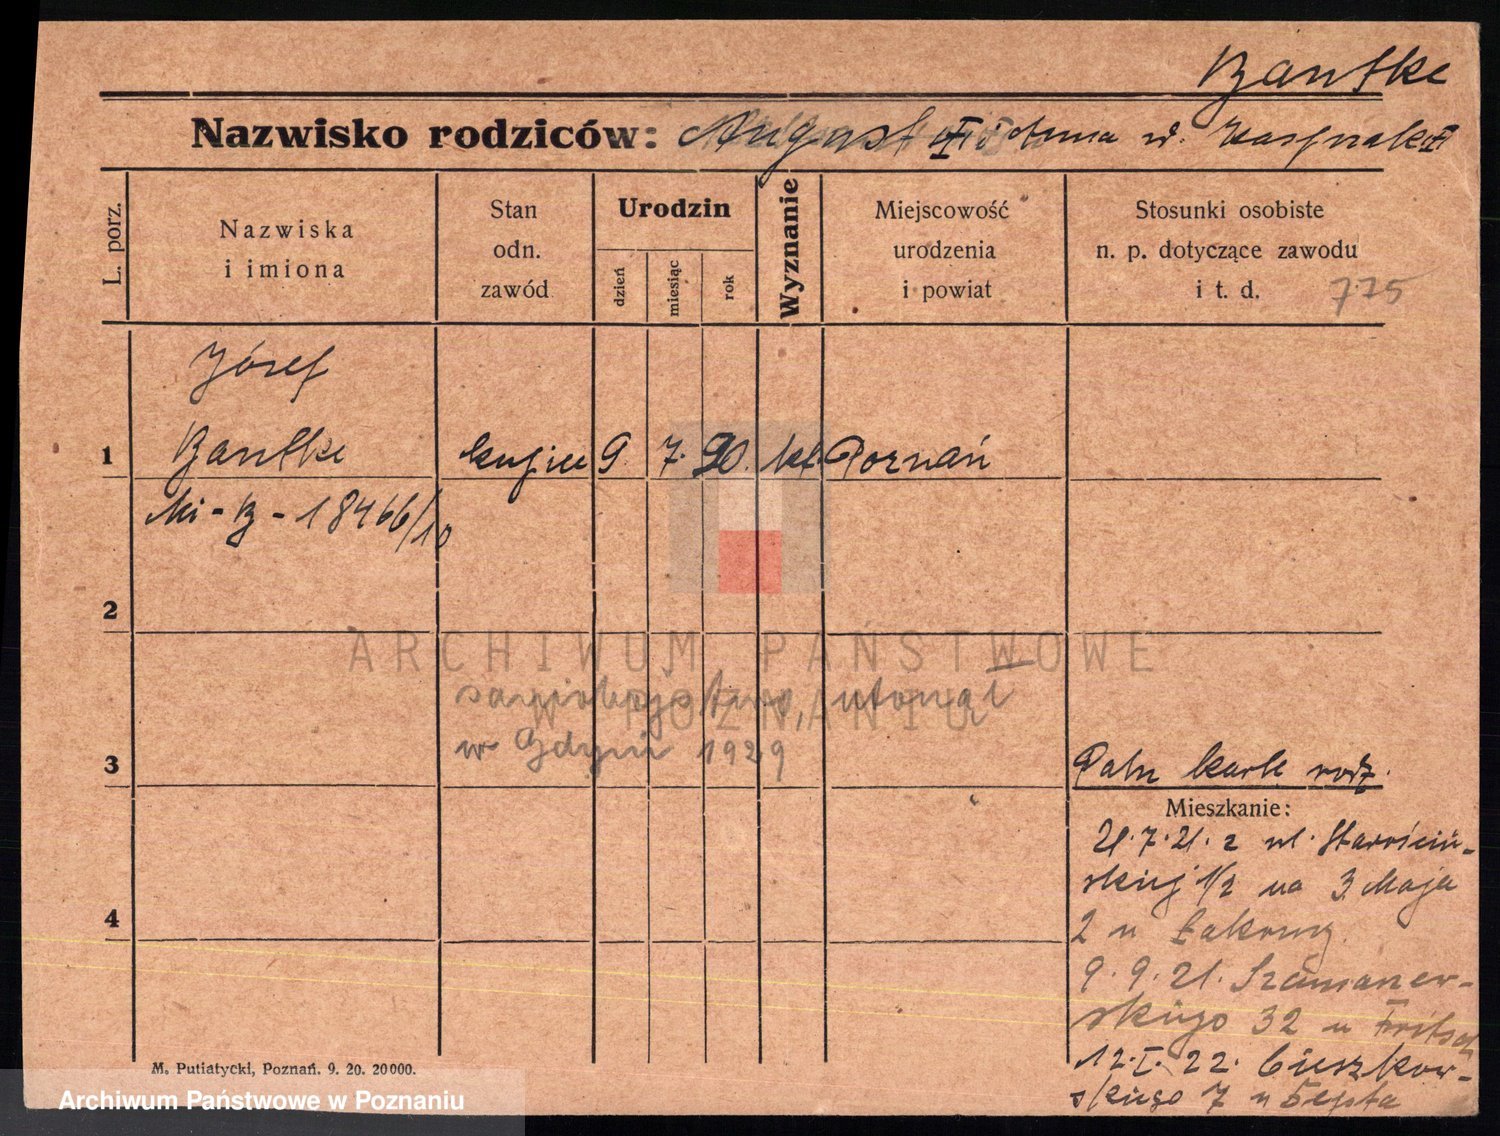 Bantke
Nazwisko rodziców: August † i Anna
L. porz.
Nazwiska
i imiona
Stan
odn.
zawód
Urodzin
dzień
miesiąc
rok
Wyznanie
Miejscowość
urodzenia
i powiat
Stosunki osobiste
n. p. dotyczące zawodu
i t. d.
775
Józef
1 Bantke kupiec 9. 7. 90. kt. Poznań
Mi - B - 18466/10
2
ARCHIWUM PAŃSTWOWE
W POZNANIU
samobójstwo, utonął
w Gdyni 1929
3
Patrz karte rodz.
Mieszkanie:
21.7.21. z ul. Starościń-
skiej 1/2 na 3. Maja
2 u
9.9.21. Szamarzew-
skiego 32 u Fritsch
12.I.22. Cieszkow-
skiego 7 u
4
M. Putiatycki, Poznań. 9. 20. 20000.
Archiwum Państwowe w Poznaniu